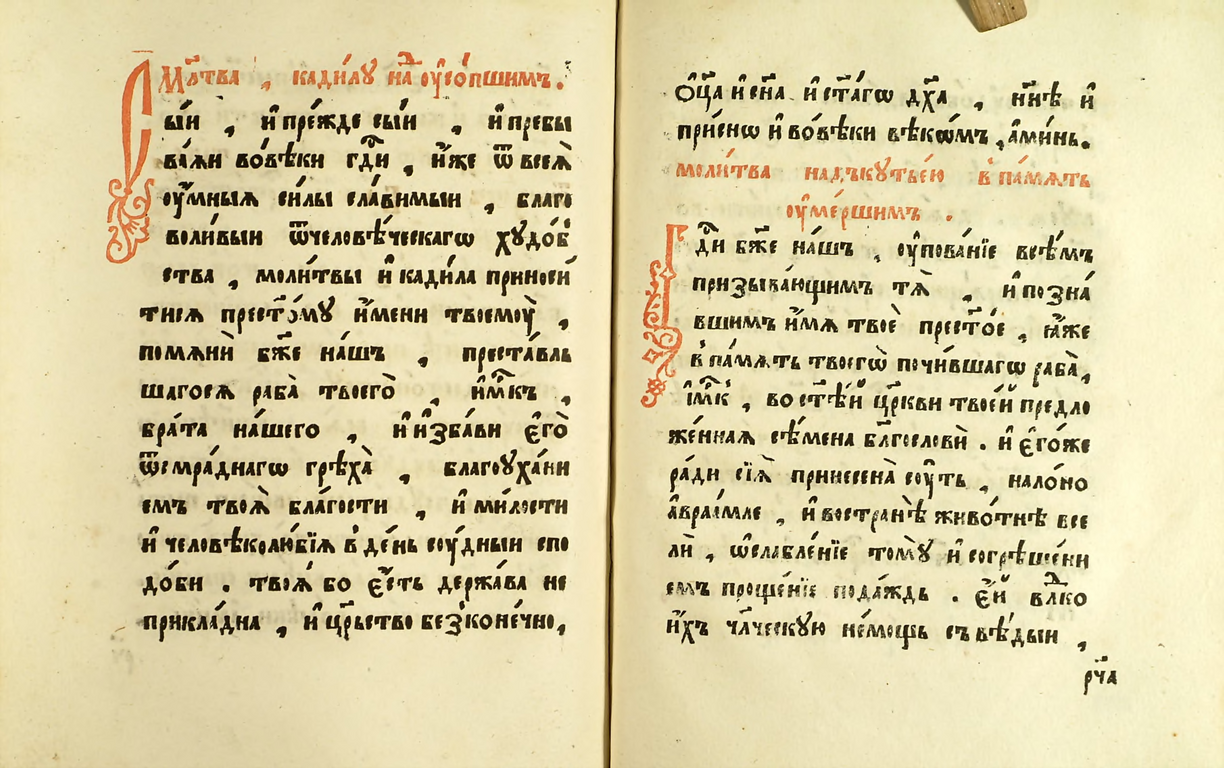 Мл҃тва , кади́лꙋ на̑ ᲂу҆со́пшимъ .
Сы́и , и҆ пре́жде сы́и , и҆ пребы
ва́ѧи во́вѣки гдⷭ҇и , и҆́же ѿ всеѧ̀
ᲂу҆́мныѧ си́лы сла́вимыи , благо
воли́выи ѿчеловѣ́ческагѡ хꙋдо́б
ства , моли́твы и҆ кади́ла приноси́
тисѧ прест҃о́мꙋ и҆́мени твоемꙋ̀ ,
помѧнѝ бж҃е на́шъ , преста́вль
шагосѧ раба̀ твоего̀ , и҆м҃къ ,
бра́та на́шего , и҆ и҆зба́ви є҆го̀
ѿсмра́днагѡ грѣ́ха̀ , благоꙋха́ни
емъ твоѧ̀ бла́гости , и҆ ми́лости
и҆ человѣколю́бїѧ в де́нь сꙋ́дныи спо
до́би . твоѧ́ бо є҆́сть держа́ва не
прикла́дна , и҆ цр҃ьство безконе́чно,
ѻ҆ц҃а и҆ сн҃а и҆ ст҃а́гѡ дх҃а , нн҃ѣ и҆
при́снѡ и҆ во́вѣки вѣкѡ́мъ , а҆ми́нь.
моли́тва надъкꙋтье́ю в па́мѧть
ᲂу҆ме́ршимъ .
Гдⷭ҇и бж҃е на́шъ , ᲂу҆пова́нїе всѣ́мъ
призыва́ющимъ тѧ̀ , и҆ позна́
вшимъ и҆́мѧ твоѐ прест҃о́е , ꙗ҆́же
в па́мѧть твоегѡ̀ почи́вшагѡ раба̀,
и҆м҃к , во ст҃ѣ́й цр҃кви твое́й предло
же́ннаѧ сѣ́мена бл҃гословѝ . и҆ є҆го́же
ра́ди сїѧ̀ принесена̀ сꙋ́ть , нало́но
а҆враа́мле , и҆ востра́нѣ живо́тнѣ все
лѝ , ѡ҆слабле́нїе томꙋ̀ и҆ согрѣше́ни
емъ проще́нїе пода́ждь . є҆́й влⷣко
и҆́хъ чл҃ческꙋю не́мощь свѣ́дыи ,
рч҃а